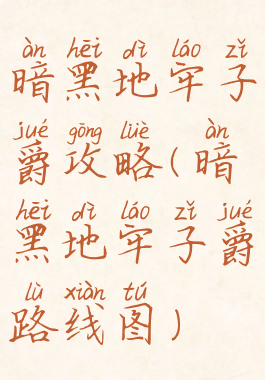 àn hēi dì láo zǐ
暗黑地牢子
jué gōng lüè àn
爵攻略(暗
hēi dì láo zǐ jué
黑地牢子爵
lù xiàn tú
路线图)